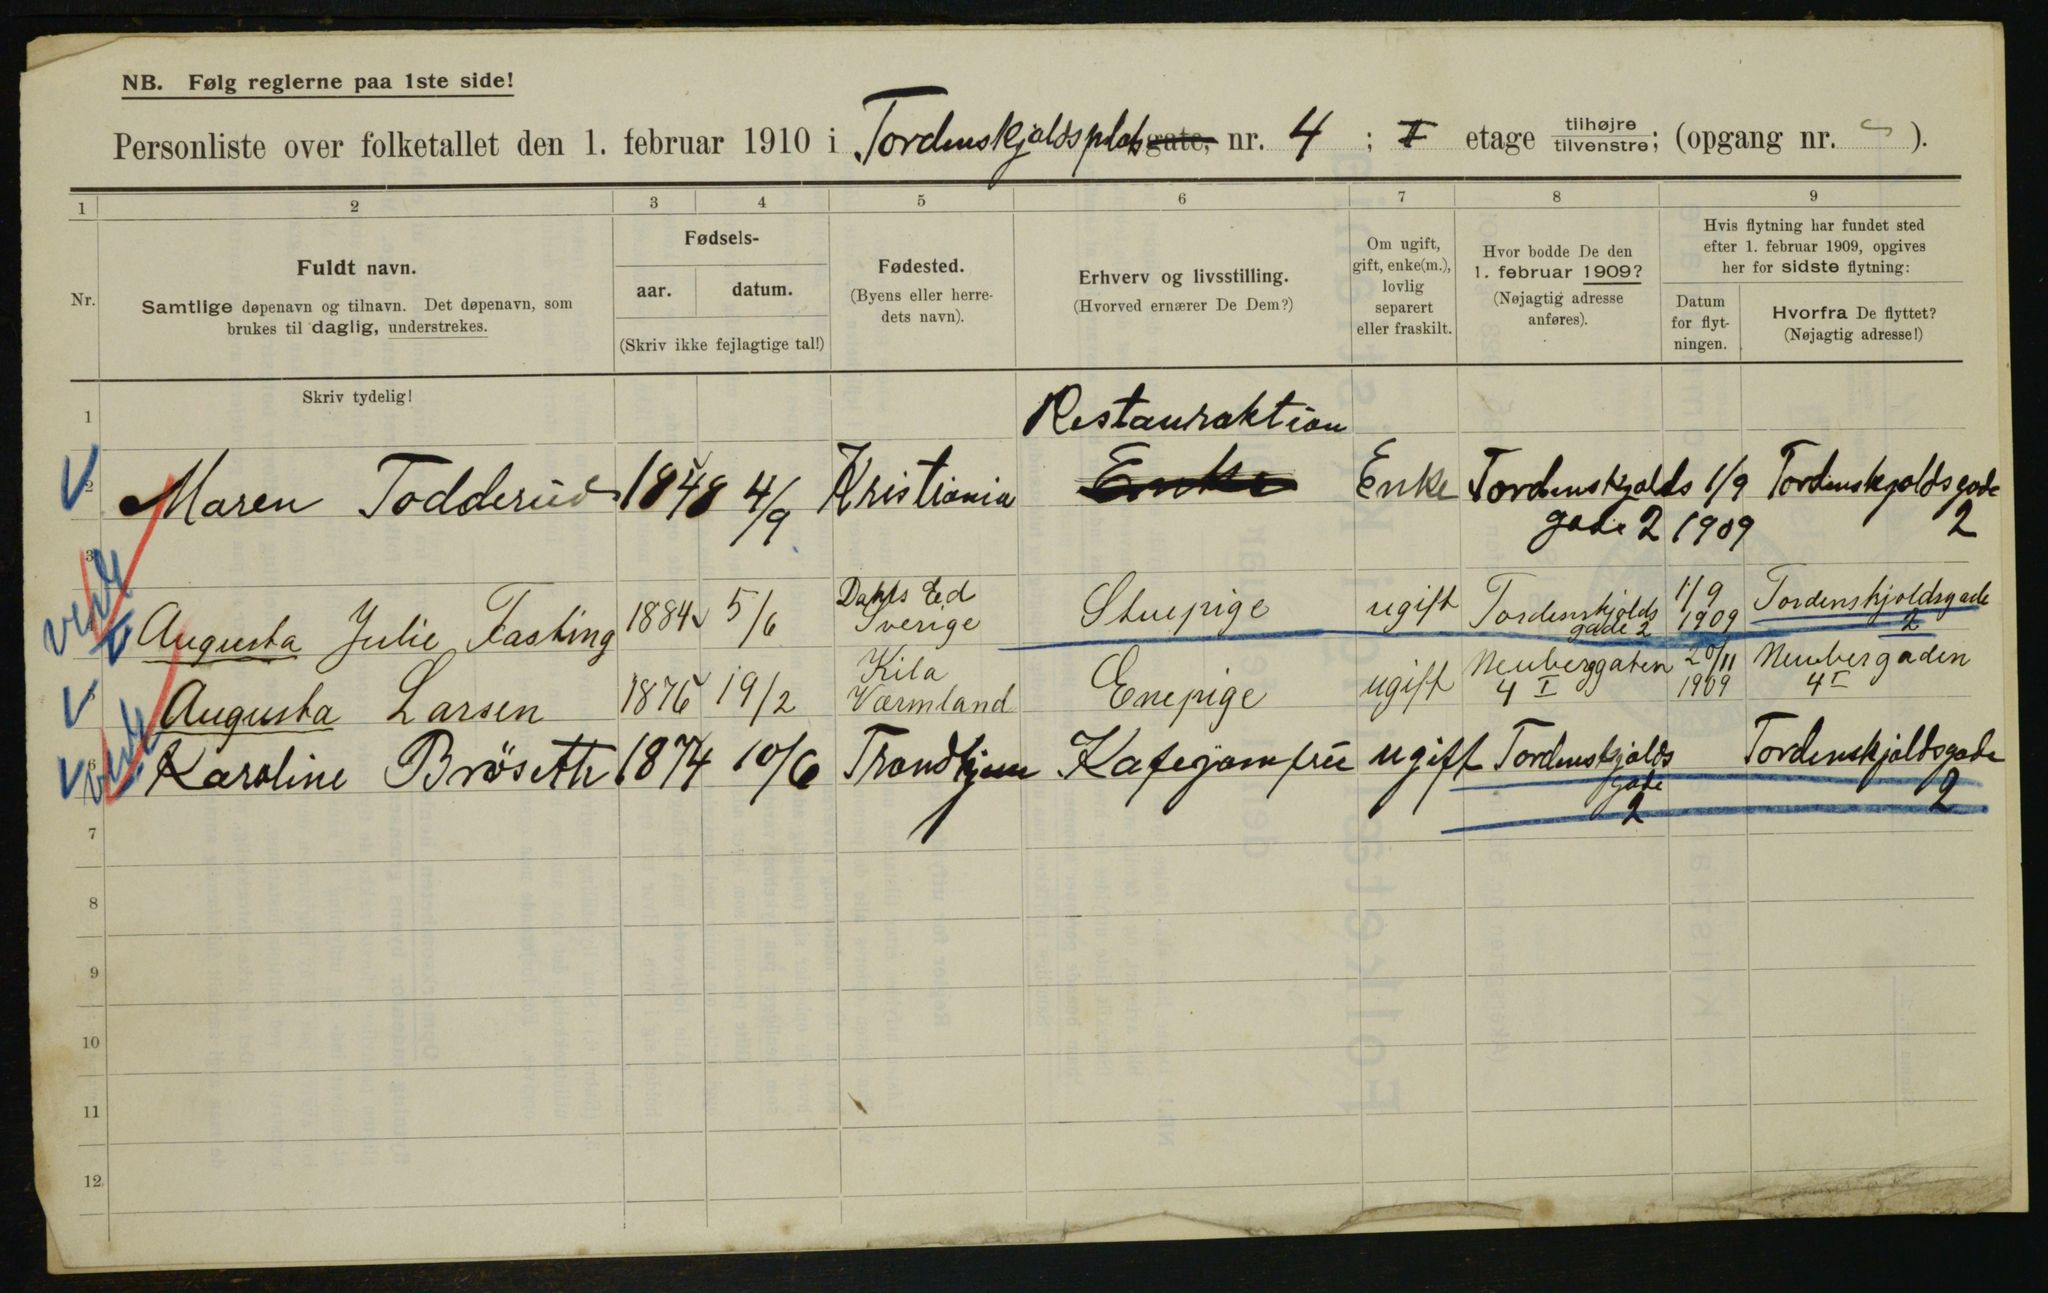 NB. Følg reglerne paa 1ste side!
Personliste over folketallet den 1. februar 1910 i Tordenskjoldsplads gate, nr. 4 ; I etage tilhøjre tilvenstre; (opgang nr. ).
1 2 3 4 5 6 7 8 9
Nr.
Fuldt navn.
Samtlige døpenavn og tilnavn. Det døpenavn, som
brukes til daglig, understrekes.
Fødsels-
aar. datum.
(Skriv ikke fejlagtige tal!)
Fødested.
(Byens eller herre-
dets navn).
Erhverv og livsstilling.
(Hvorved ernærer De Dem?)
Om ugift,
gift, enke(m.),
lovlig
separert
eller fraskilt.
Hvor bodde De den
1. februar 1909?
(Nøjagtig adresse
anføres).
Hvis flytning har fundet sted
efter 1. februar 1909, opgives
her for sidste flytning:
Datum
for flyt-
ningen.
Hvorfra De flyttet?
(Nøjagtig adresse!)
Skriv tydelig!
1
Restauraktion
2 Maren Todderud 1848 4/9 Kristiania Enke Enke Tordenskjolds 1/9 Tordenskjoldsgade
gade 2 1909 2
3
Dahls Ed
Augusta Julie Fasting 1884 5/6 Sverige Stuepige ugift Tordenskjolds gade 2 1/9 1909 Tordenskjoldsgade 2
Kila
5 Augusta Larsen 1876 19/2 Værmland Enepige ugift Neuberggaten 4 I 20/11 1909 Neubergaden 4 I
6 Karoline Brøseth 1874 10/6 Trondhjem Kafejomfru ugift Tordenskjolds gade 2 Tordenskjoldsgade 2
7
8
9
10
11
12